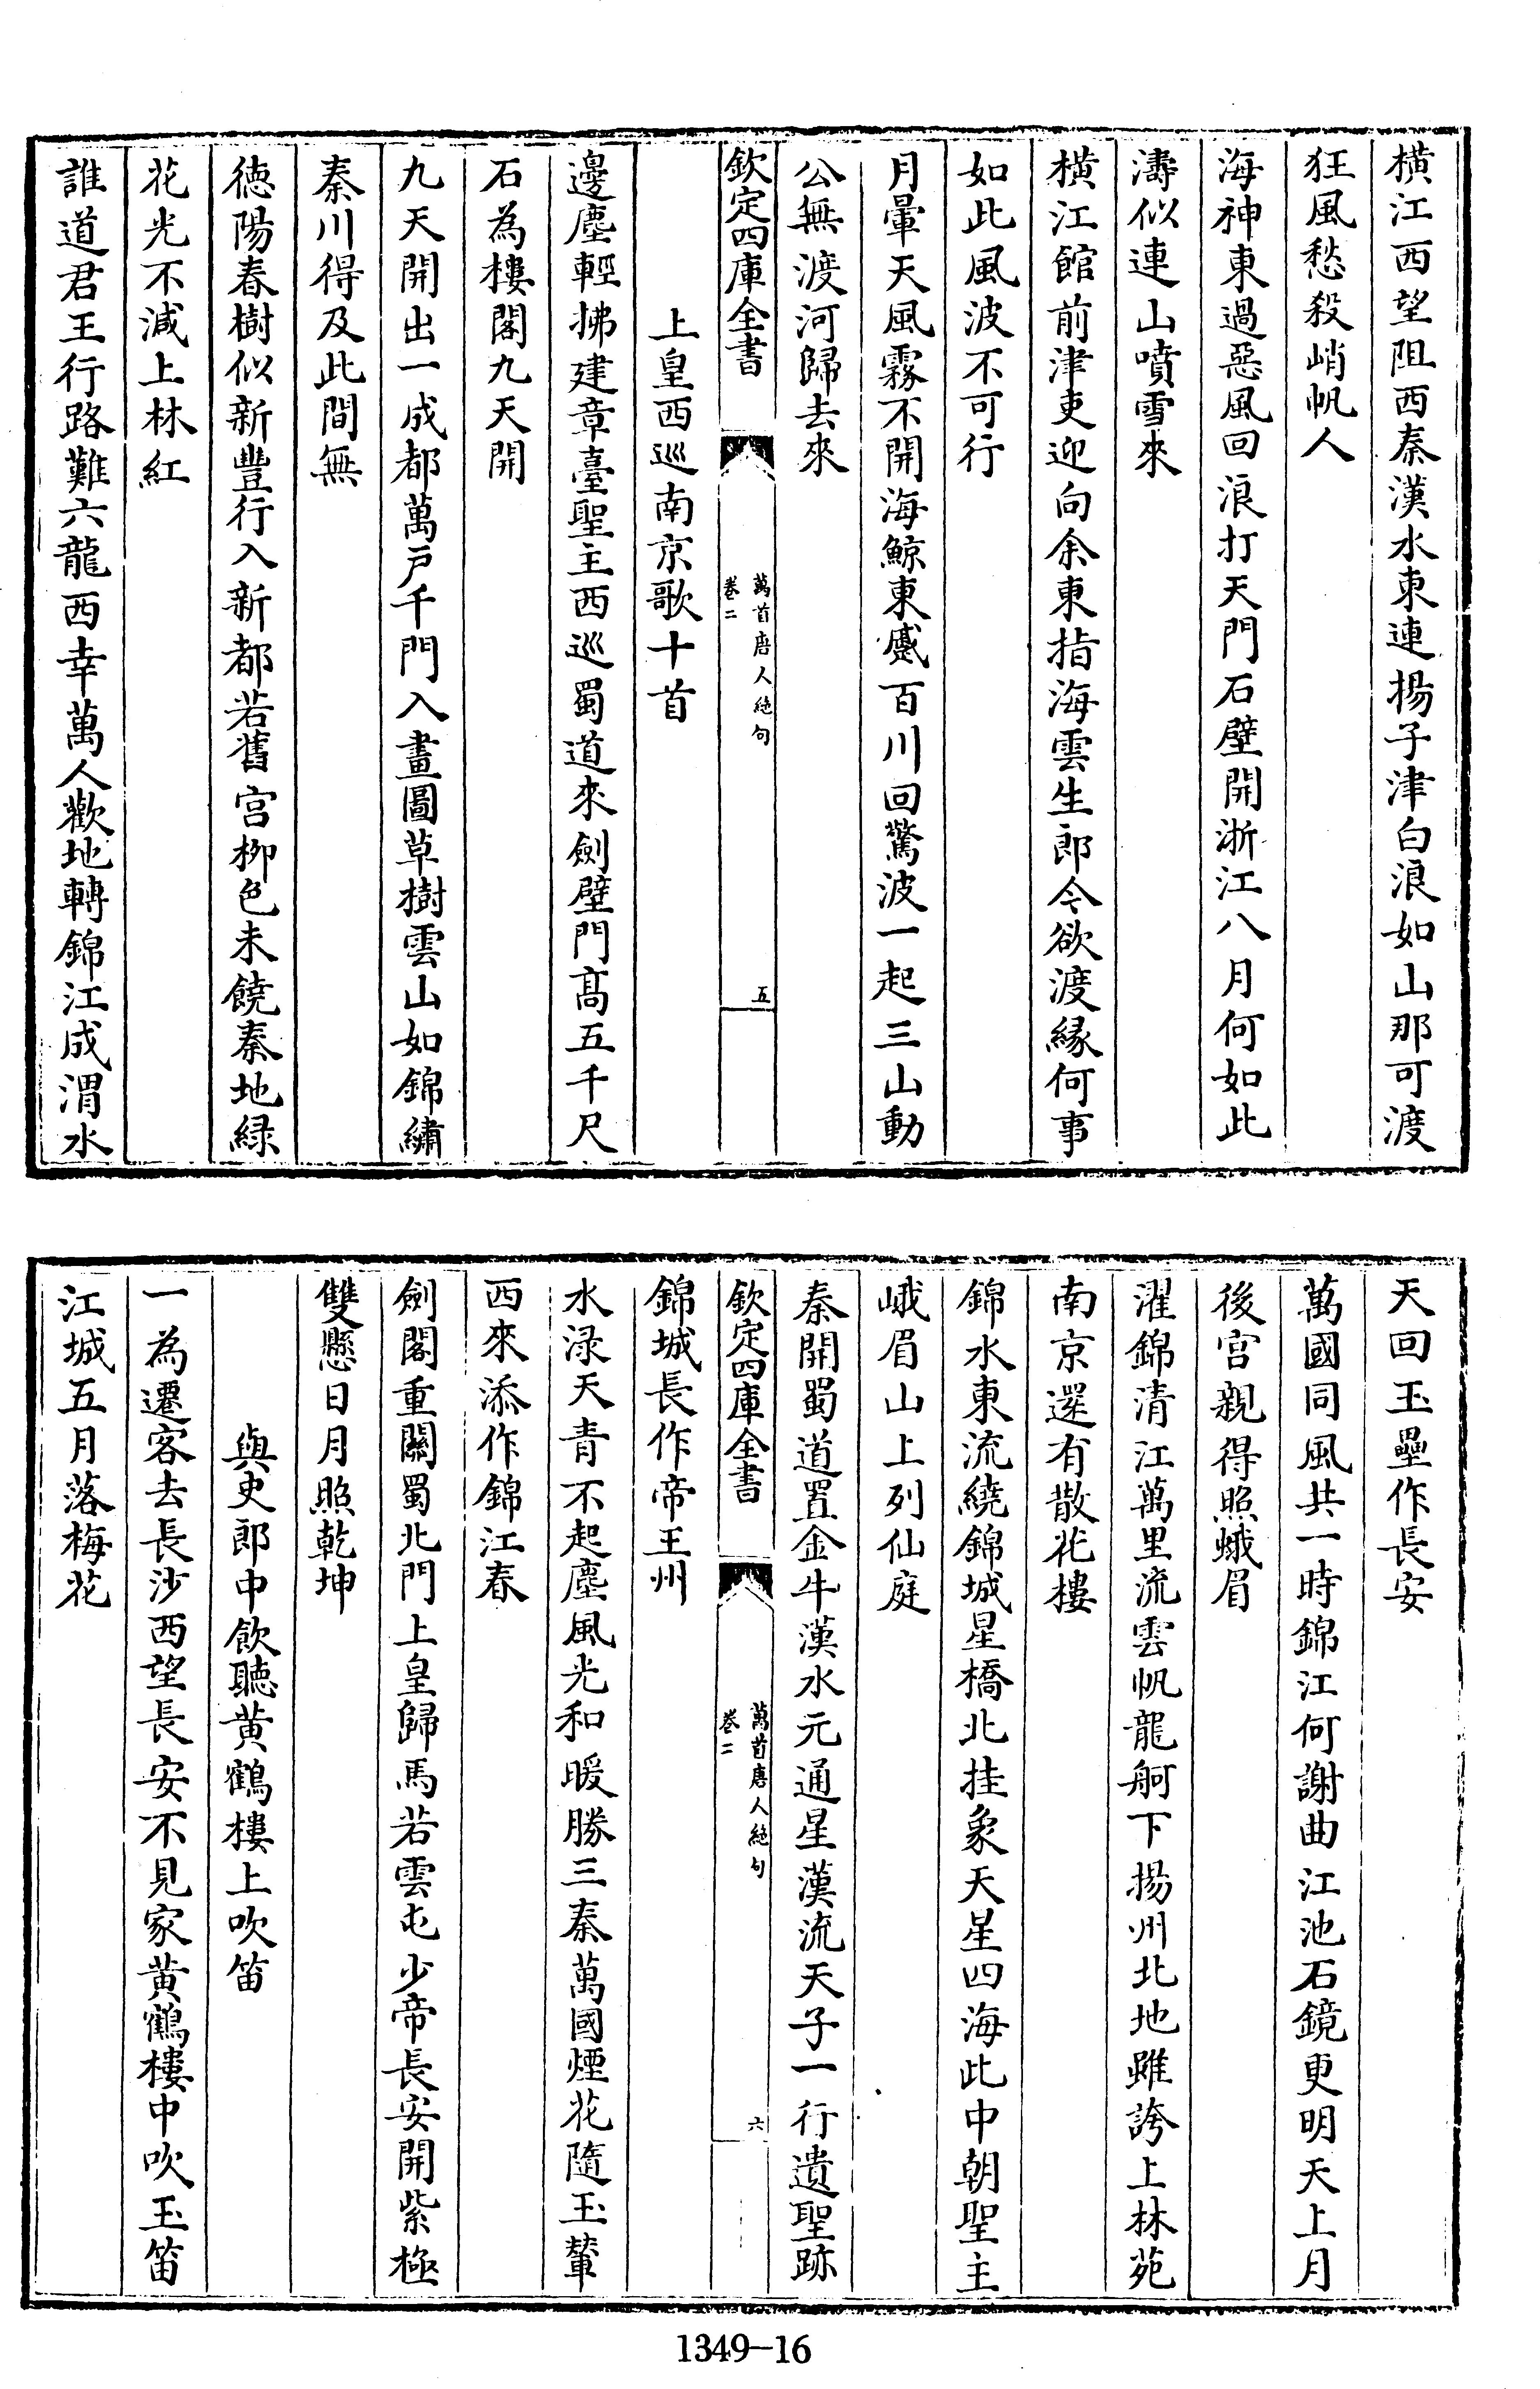 橫江西望阻西秦漢水東連揚子津白浪如山那可渡
狂風愁殺峭帆人
海神東過惡風回浪打天門石壁開浙江八月何如此
濤似連山噴雪來
橫江館前津吏迎向余東指海雲生郎今欲渡緣何事
如此風波不可行
月暈天風霧不開海鯨東蹙百川回驚波一起三山動
公無渡河歸去來
欽定四庫全書
萬首唐人絶句
卷二
五
上皇西巡南京歌十首
邊塵輕拂建章臺聖主西巡蜀道來劍壁門髙五千尺
石為樓閣九天開
九天開出一成都萬戸千門入畫圖草樹雲山如錦繡
秦川得及此間無
徳陽春樹似新豐行入新都若舊宫柳色未饒秦地緑
花光不減上林紅
誰道君王行路難六龍西幸萬人歡地轉錦江成渭水
天回玉壘作長安
萬國同風共一時錦江何謝曲江池石鏡更明天上月
後宫親得照蛾眉
濯錦清江萬里流雲帆龍舸下揚州北地雖誇上林苑
南京還有散花樓
錦水東流繞錦城星橋北挂象天星四海此中朝聖主
峨眉山上列仙庭
秦開蜀道置金牛漢水元通星漢流天子一行遺聖跡
欽定四庫全書
萬首唐人絶句
卷二
六
錦城長作帝王州
水渌天青不起塵風光和暖勝三秦萬國煙花隨玉輦
西來添作錦江春
劍閣重關蜀北門上皇歸馬若雲屯少帝長安開紫極
雙懸日月照乾坤
與史郎中飲聽黄鶴樓上吹笛
一為遷客去長沙西望長安不見家黄鶴樓中吹玉笛
江城五月落梅花
1349-16